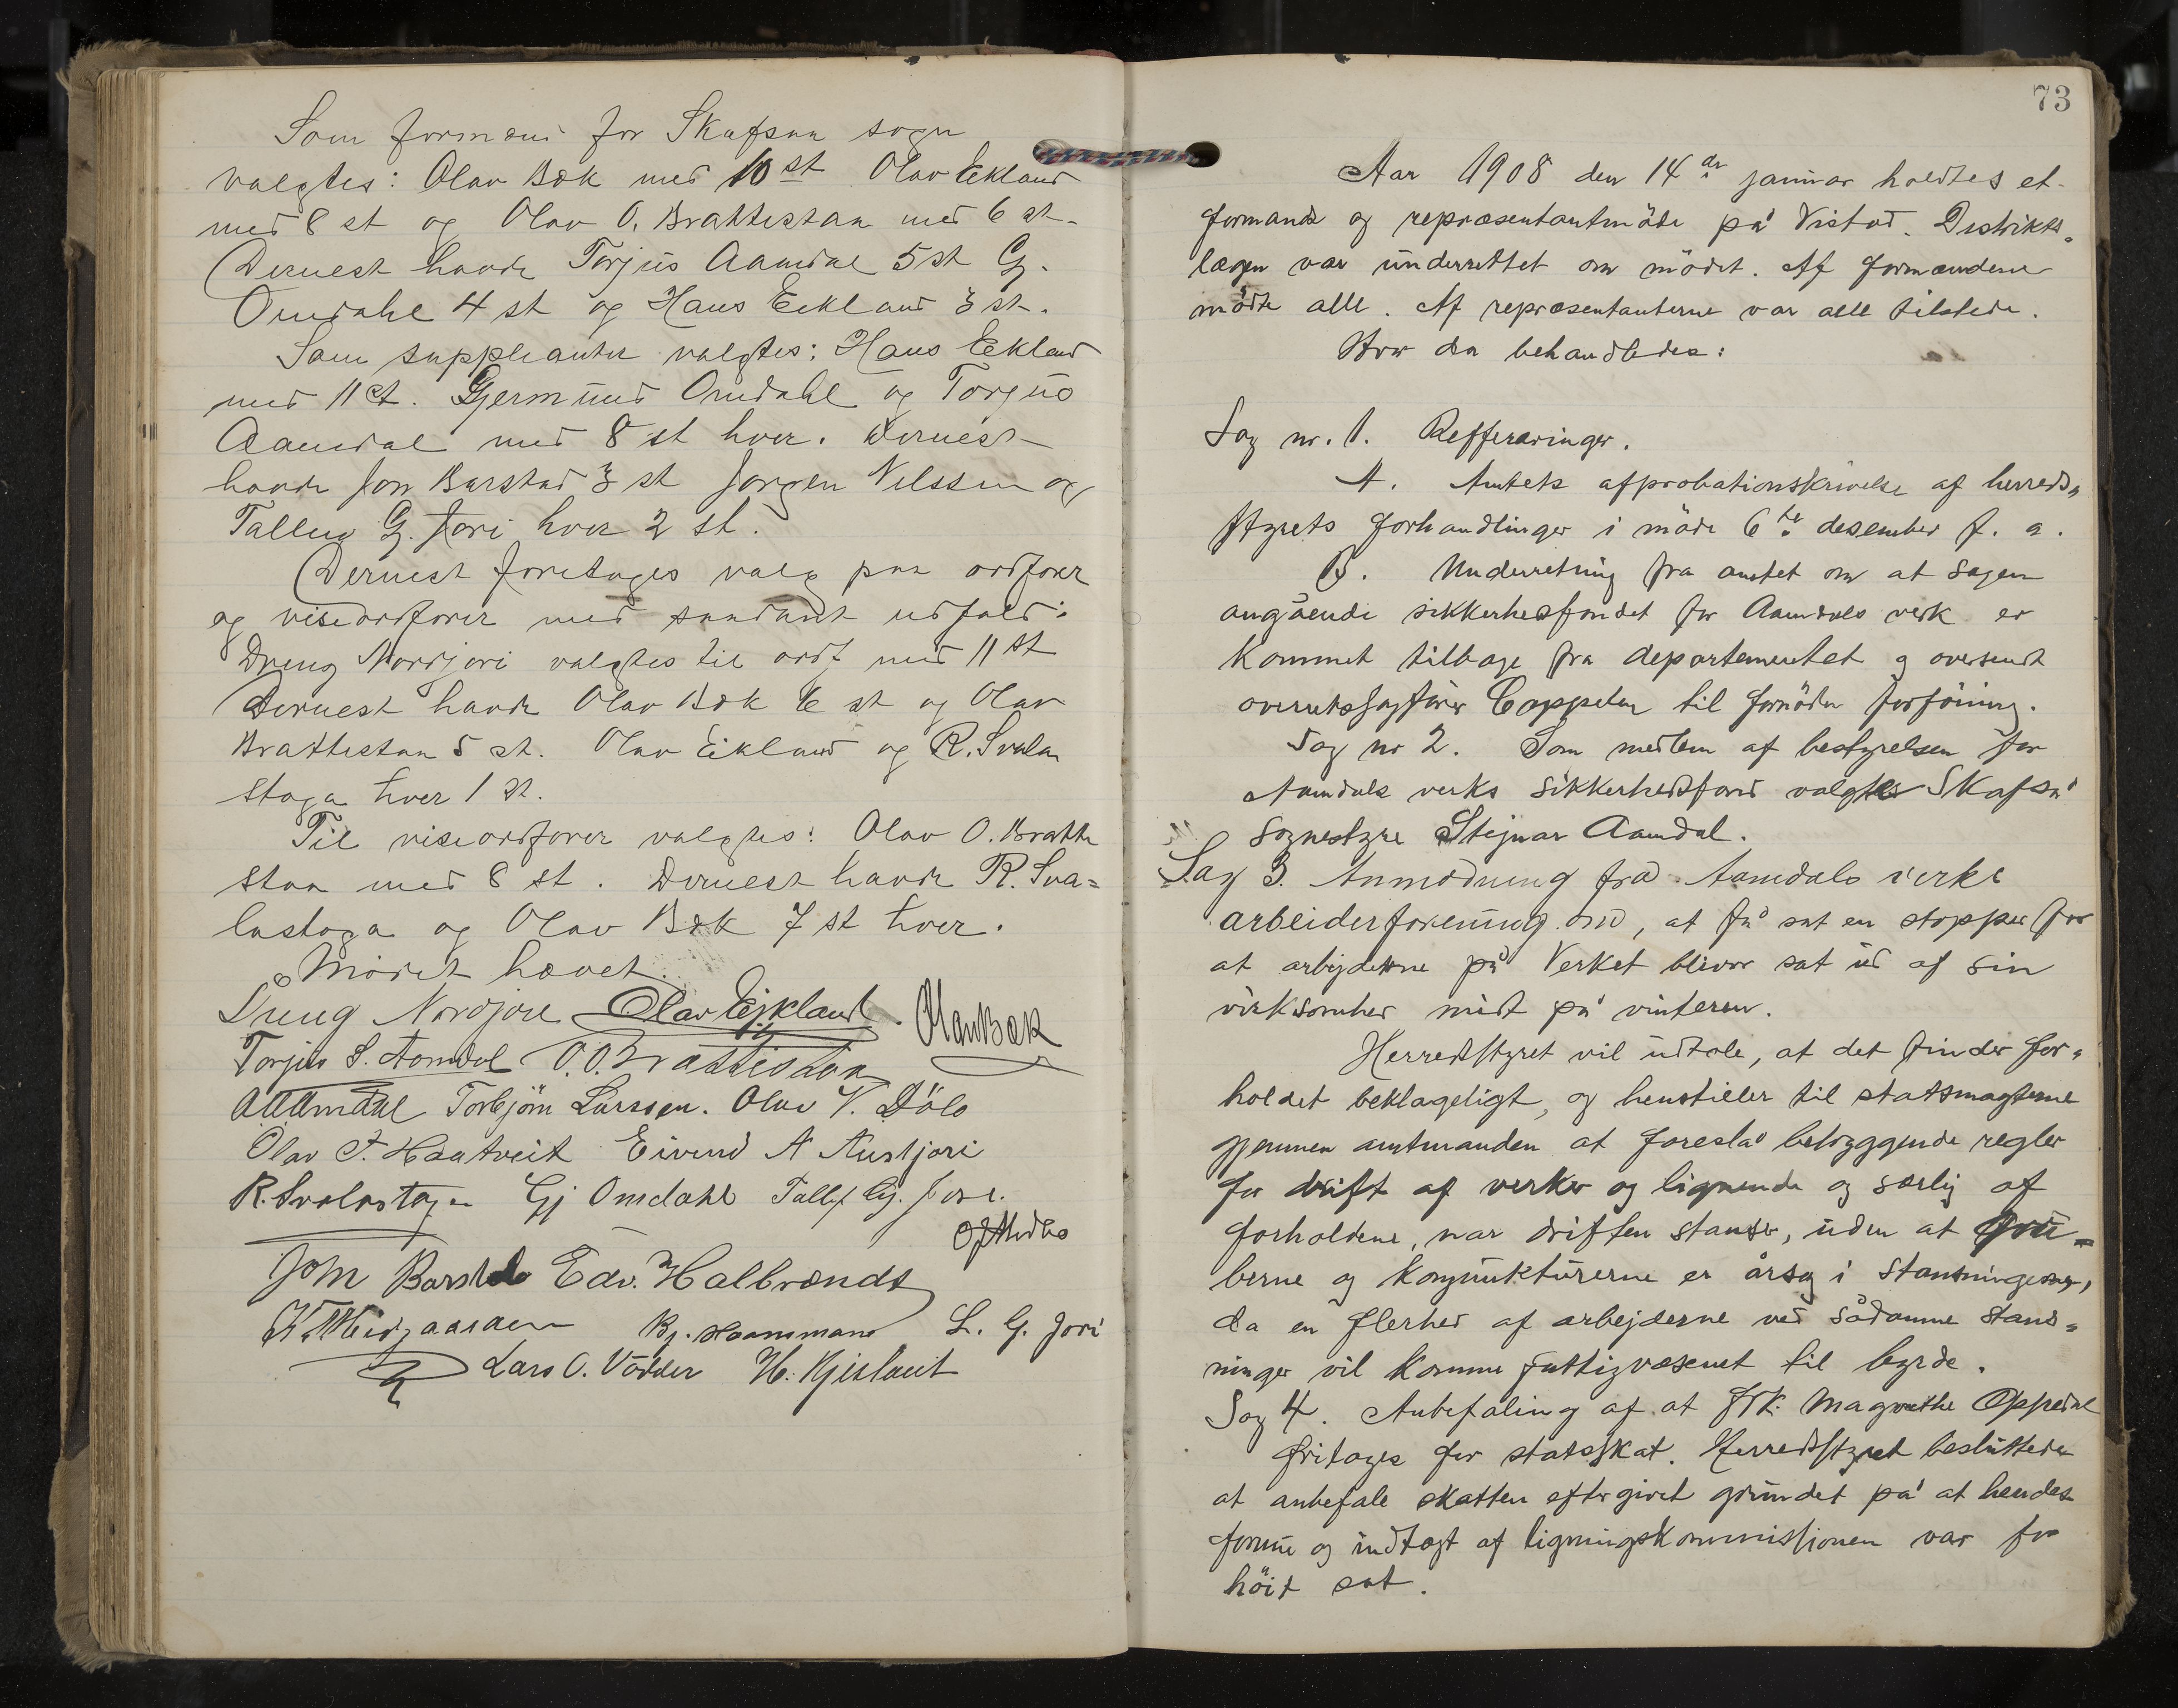 Som formænd for Skafsaa sogn
valgtes: Olav Bæk med 10 st Olav Eekland
med 8 st og Olav O. Brattestaa med 6 st.
Dernest havde Torjus Aamdal 5 st G.
Omdahl 4 st og Hans Eekland 3 st.
Som suppleanter valgtes: Hans Eekland
med 11 st. Gjermund Omdahl og Torjus
Aamdal med 8 st hver. Dernest
havde Jon Barstad 3 st Jørgen Nilssen og
Tallev G. Jori hver 2 st.
Dernest foretages valg paa ordfører
og viseordfører med saadant udfald:
Dreng Nordjori valgtes til ordf med 11 st
Dernest havde Olav Bæk 6 st og Olav
Brattestaa 5 st. Olav Eikland og R. Svala
stoga hver 1 st.
Til viseordfører valgtes: Olav O. Bratte
staa med 8 st. Dernest havde R. Sva=
lastoga og Olav Bæk 7 st hver.
Mødet hævet.
Dreng Nordjore Olav Eikland. Olav Bæk
Torjus S. Aamdal O. O. Brattestaa
Torbjörn Larssen. Olav V. Dölo
Olav T. Haatveit Eivind A Austjori
R. Svalastoga Gj Omdahl Tallef Gj. Jore.
John Barstad Edv. Halbrændt
Bj. Haammann L. G. Jori
Lars O. Vådder H. Kjistveit
73
Aar 1908 den 14de januar holdtes et
formands og repræsentantmöde på Vistad. Distrikts=
lægen var underrettet om mödet. Af formændene
mödte alle. Af repræsentanterne var alle tilstede.
Hvor da behandledes:
Sag nr. 1. Refferæringer.
A. Amtets afprobationskrivelse af herreds=
styrets forhandlinger i möde 6te desember f. a.
B. Underretning fra amtet om at sagen
angående sikkerhedsfondet for Aamdals verk er
kommet tilbage fra departementet og oversendt
overretssagförer Cappelen til fornöden forföining.
Sag nr 2. Som medlem af bestyrelsen for
Aamdals verks sikkerhedsfond valgtes Skafså
sognestyre Stejnar Aamdal.
Sag 3. Anmodning fra Aamdals verks
arbeiderforening om, at få sat en stopper for
at arbejderne på Verket bliver sat ud af sin
virksomhed midt på vinteren.
Herredsstyret vil udtale, at det finder for=
holdet beklageligt, og henstiller til statsmagterne
gjennem amtmanden at foreslå betryggende regler
for drift af verker og lignende og særlig af
forholdene, nar driften stanser, uden at gru=
berne og konjunkturerne er årsag i stansningen,
da en flerhed af arbejderne ved sådanne stans=
ninger vil komme fattigvæsenet til byrde.
Sag 4. Anbefaling af at frk. Magrethe Oppedal
fritages for statsskat. Herredsstyret besluttede
at anbefale skatten eftergivet grundet på at hendes
formue og indtægt af ligningskommissionen var for
höit sat.